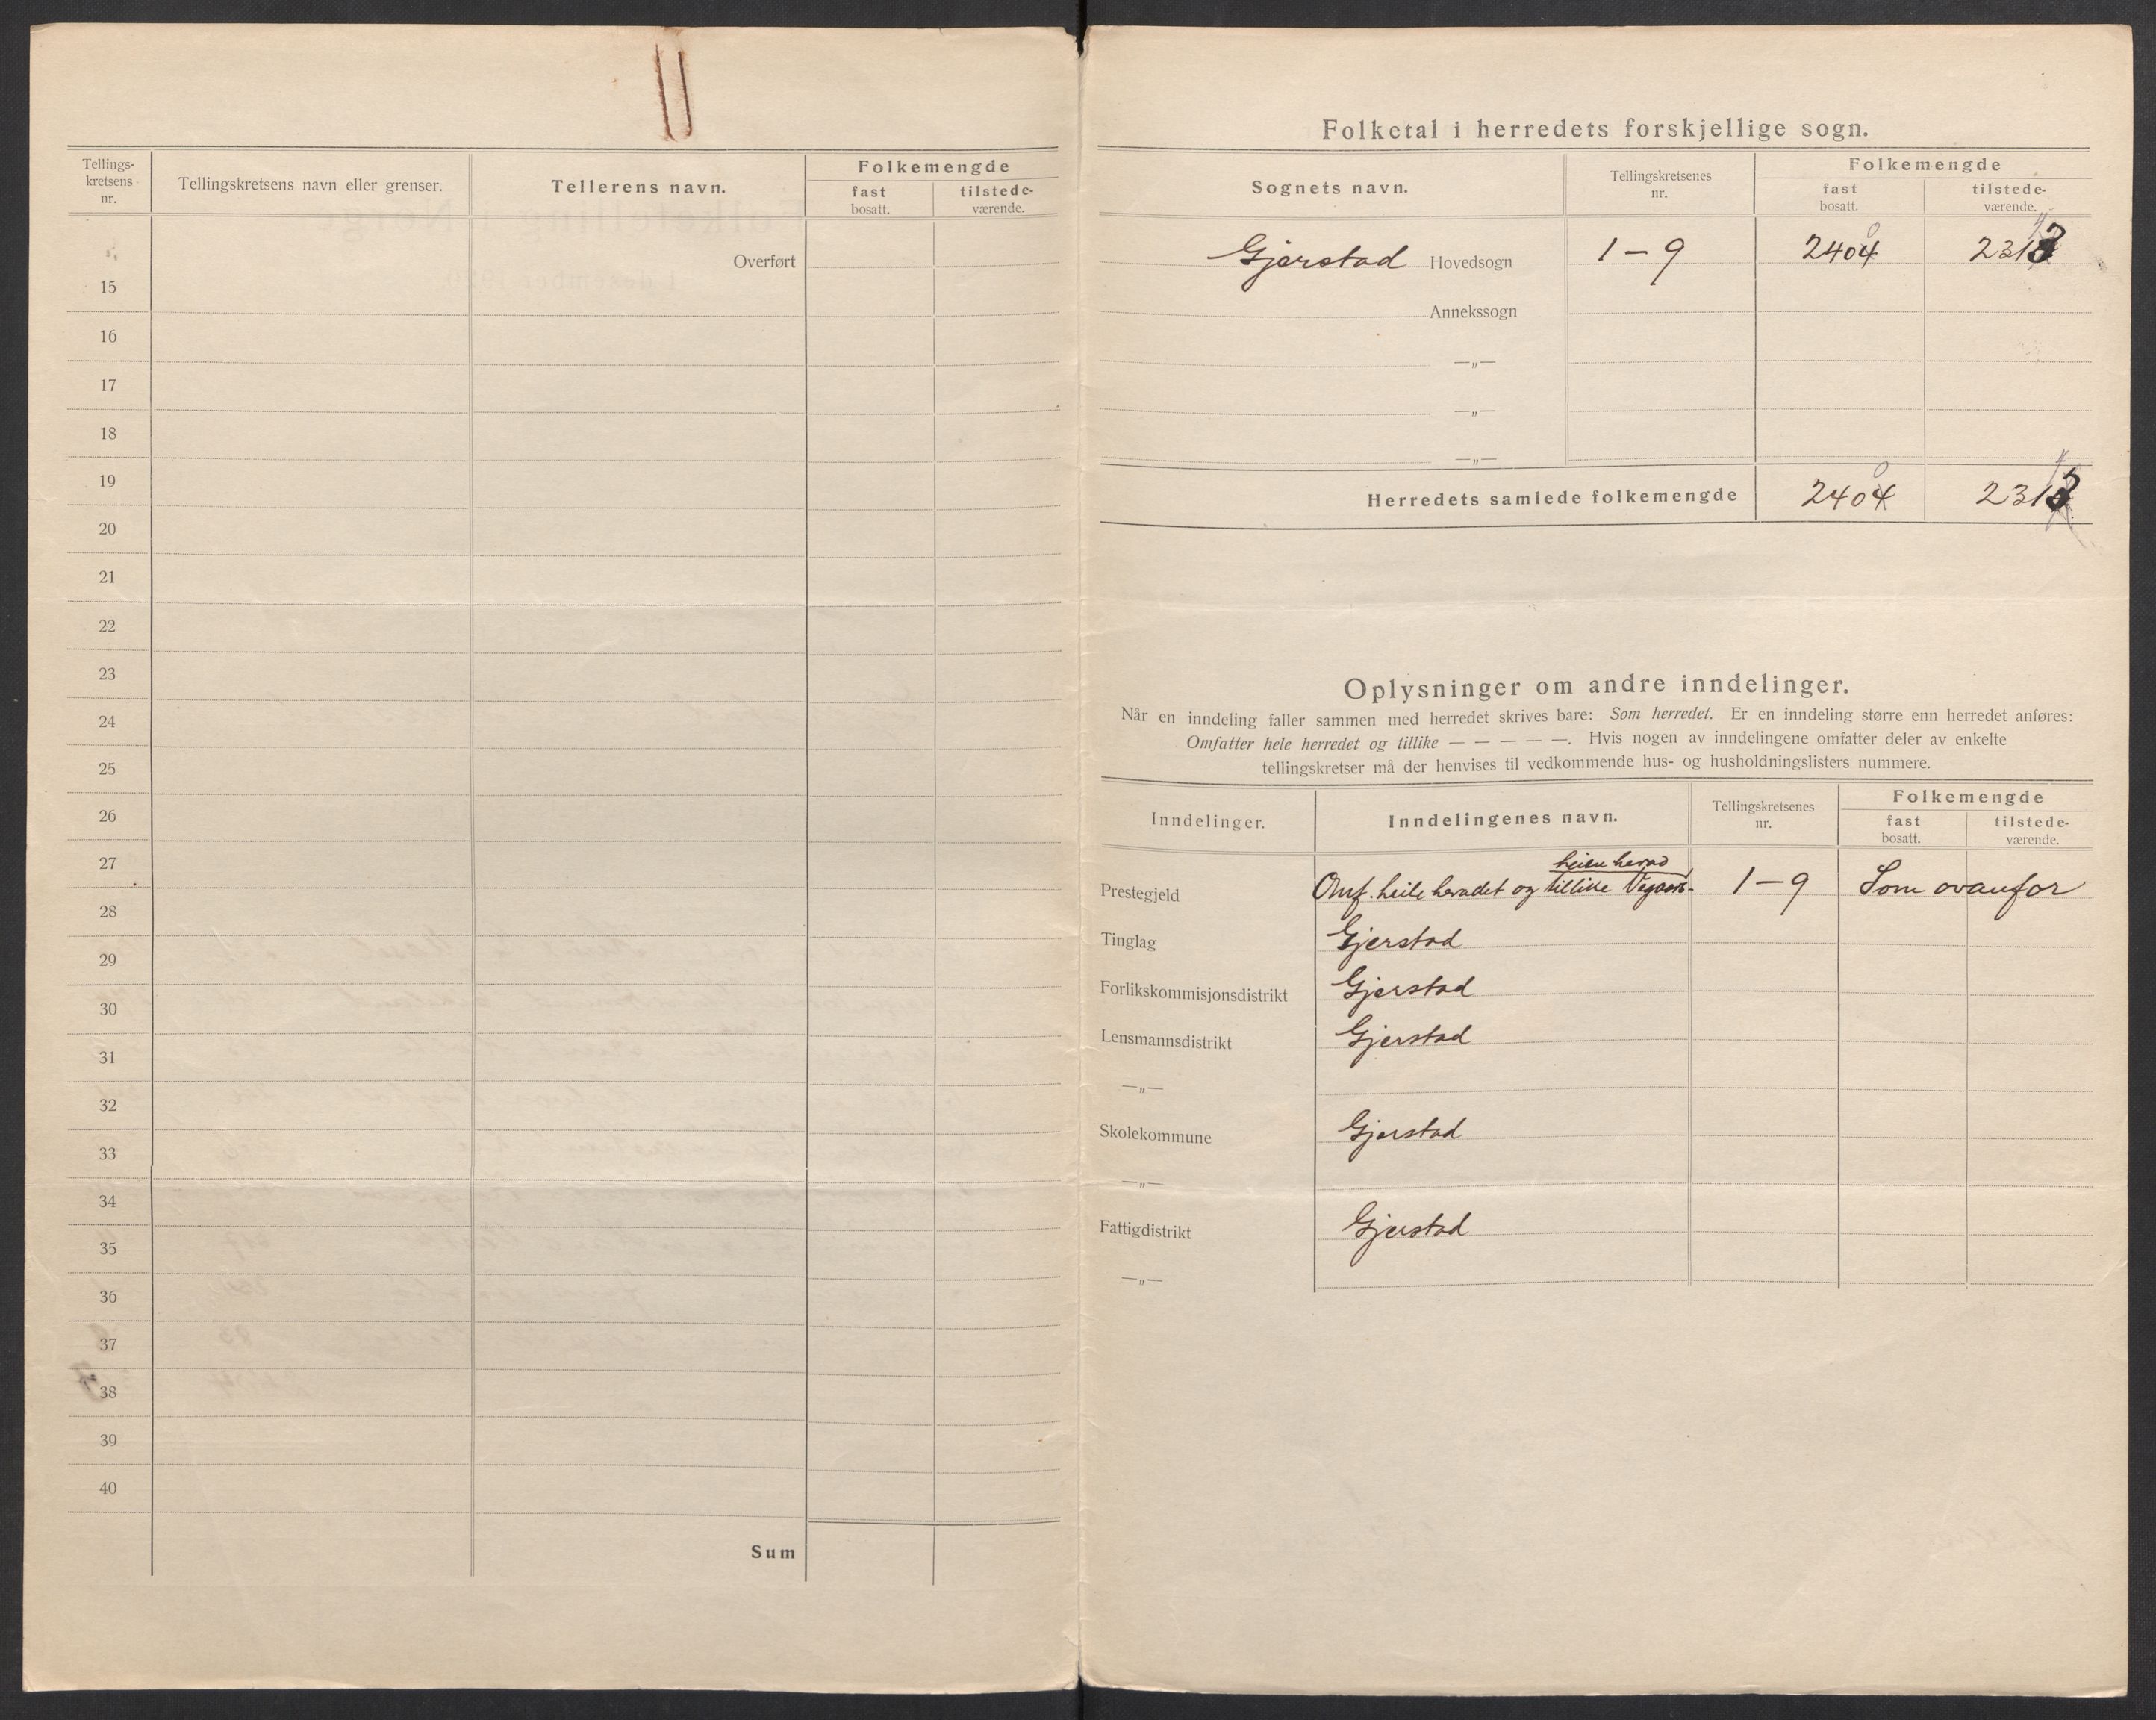 Tellings-
kretsens
nr.
Tellingskretsens navn eller grenser.
Tellerens navn.
Folkemengde
fast
bosatt.
tilstede-
værende.
Overført
15
16
17
18
19
20
21
22
23
24
25
26
27
28
29
30
31
32
33
34
35
36
37
38
39
40
Sum
Folketal i herredets forskjellige sogn.
Sognets navn.
Tellingskretsenes
nr.
Folkemengde
fast
bosatt.
tilstede-
værende.
Gjerstad Hovedsogn 1-9 2404
Annekssogn
—„—
—„—
—„—
Herredets samlede folkemengde 2404
Oplysninger om andre inndelinger.
Når en inndeling faller sammen med herredet skrives bare: Som herredet. Er en inndeling større enn herredet anføres:
Omfatter hele herredet og tillike — — — — —. Hvis nogen av inndelingene omfatter deler av enkelte
tellingskretser må der henvises til vedkommende hus- og husholdningslisters nummere.
Inndelinger.
Inndelingenes navn.
Tellingskretsenes
nr.
Folkemengde
fast
bosatt.
tilstede-
værende.
Prestegjeld Omf. heile heradet og tillike 1-9 Som ovanfor
Tinglag Gjerstad
Forlikskommisjonsdistrikt Gjerstad
Lensmannsdistrikt Gjerstad
—„—
Skolekommune Gjerstad
—„—
Fattigdistrikt Gjerstad
—„—